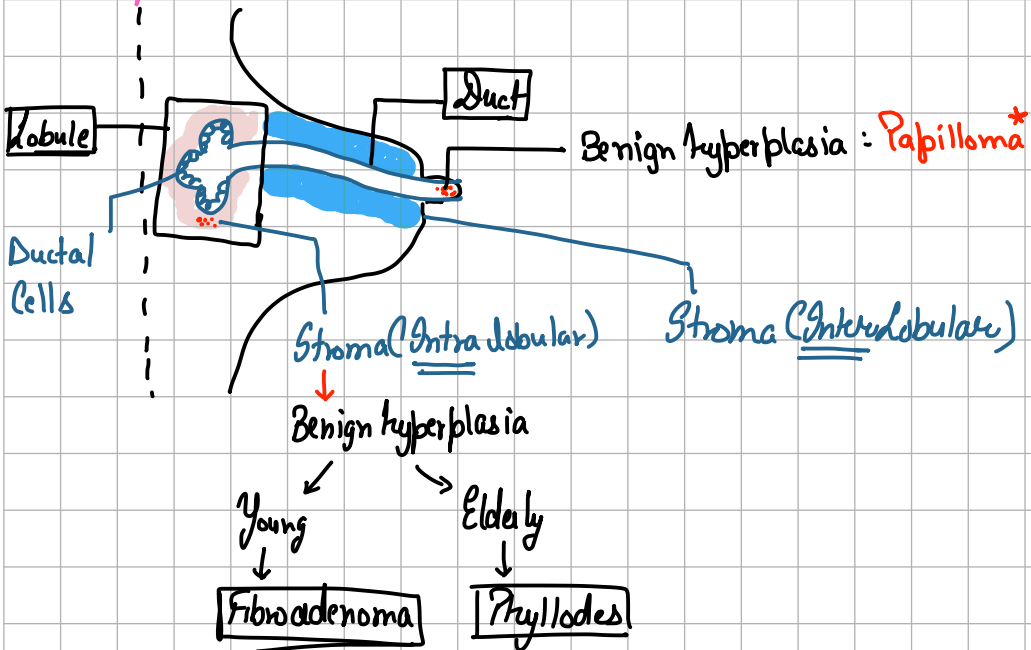 Duct
Lobule
Benign hyperplasia : Papilloma*
Ductal
Cells
Stroma (Intra lobular)
Stroma (Inter Lobular)
Benign hyperplasia
Young
Elderly
Fibroadenoma
Phyllodes